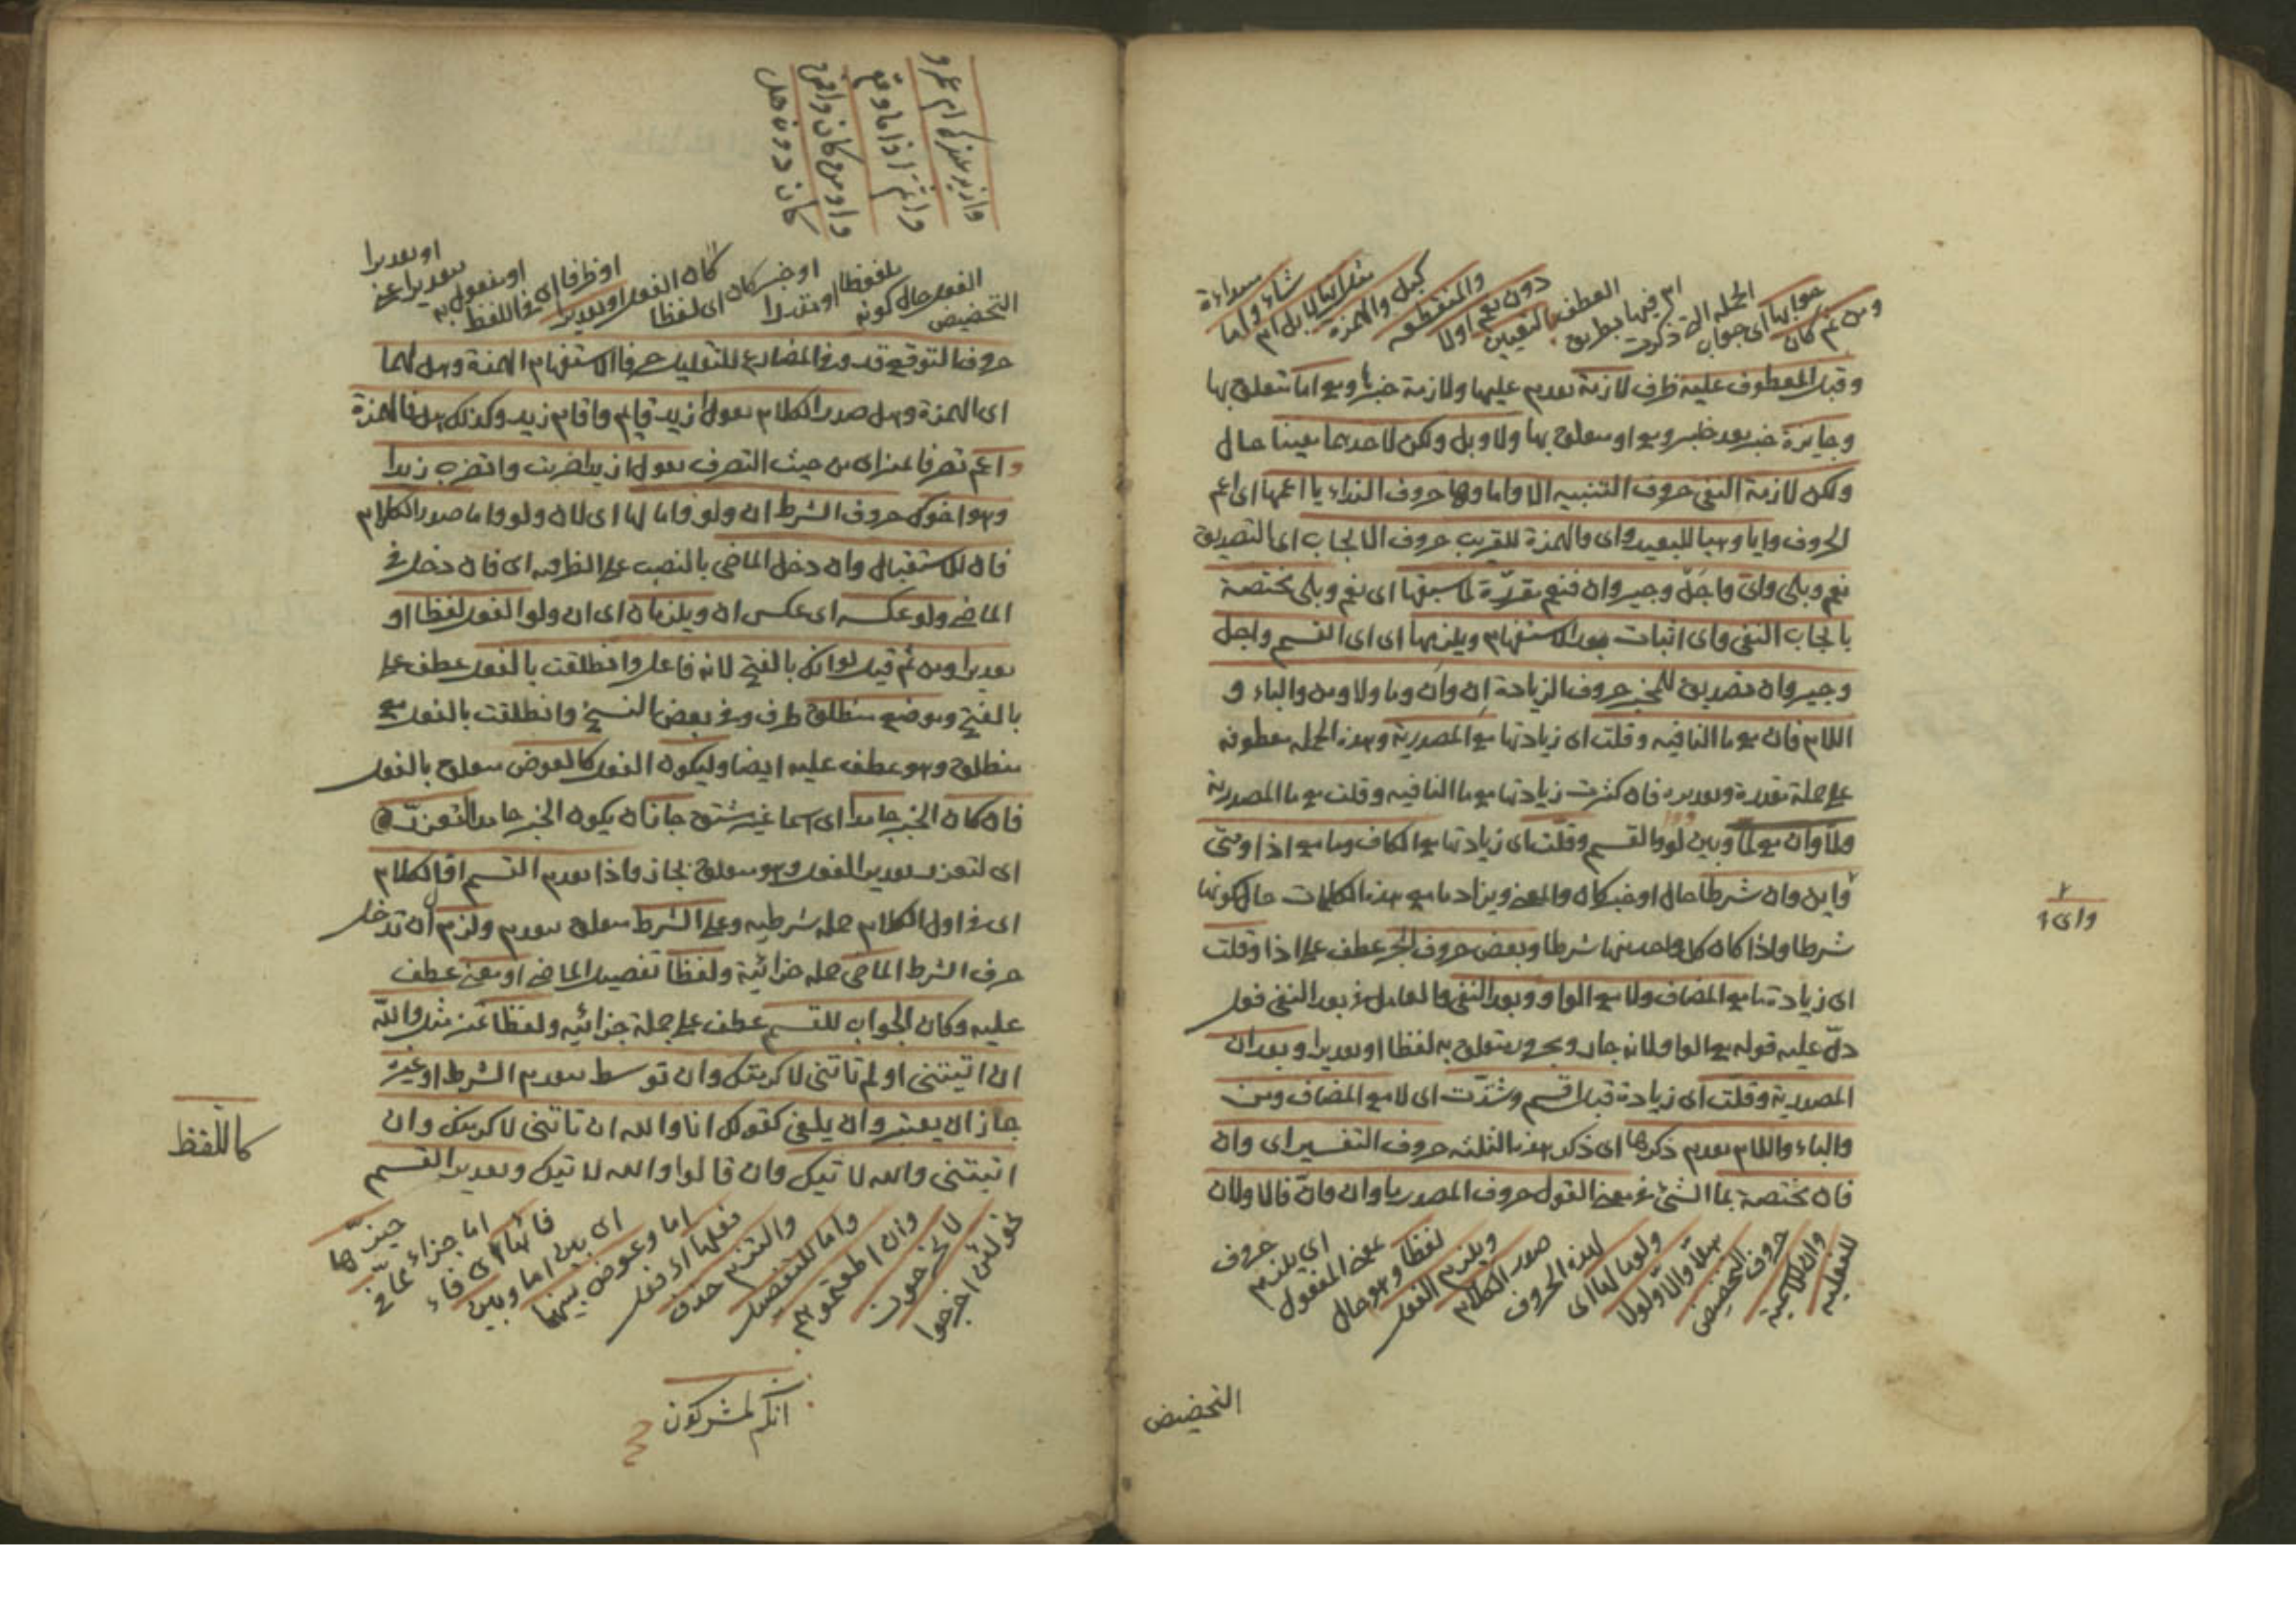 ومن ثم كان
جوابها اى جواب
الجمله التى ذكرت
ام فيها بطريق
العطف بالتعيين
دون نعم او لا
والمنقطعه
كبل والهمزة
مثل انها لابل ام
شاء واما
وقبل المعطوف عليه ظرف لازمة تقدم عليها ولازمة خبر يا مع اما متعلق بها
وجايزة خبر بعد خبر مع او متعلق بها ولا وبل ولكن لاحدهما معينا حال
ولكن لازمة النفى حروف التنبيه الا واما وها حروف النداء يا اعمها اى اعم
الحروف وايا وهيا للبعيد واى والهمزة للقريب حروف الايجاب اى التصديق
نعم وبلى واى واجل وجير وان فنعم مقررة لما سبقها اى نعم وبلى مختصة
بايجاب النفى واى اثبات بعد الاستفهام ويلزمها اى اى القسم واجل
وجير وان تصديق للمخبر حروف الزيادة ان وان وما ولا ومن والباء و
اللام فان مع ما النافيه وقلت اى زيادتها مع المصدرية وهذه الجمله معطوفه
على جملة مقدرة وتقديره فان كثرت زيادتها مع ما النافيه وقلت مع ما المصدرية
ولما وان مع لما وبين لو والقسم وقلت اى زيادتها مع الكاف وما مع اذا ومتى
واين وان شرطا حال او خبر كان والمعنى ويزاد ما مع هذه الكلمات حال كونها
واى
شرطا واذا كان كل واحد منها شرطا وبعض حروف الجر عطف على اذا وقلت
اى زيادة ما مع المضاف ولا مع الواو وبعد النفى والعامل فى بعد النفى فعل
دل عليه قوله مع الواو لانه جار ومجرور متعلق به لفظا او تقديرا وبعد ان
المصدرية وقلت اى زيادة قبل اقسم وشذت اى لا مع المضاف ومن
والباء واللام تقدم ذكرها اى ذكر هذه الثلثه حروف التفسير اى وان
فان مختصة بما الشئ فى معنى القول حروف المصدر ما وان وان فالاولان
للفعليه
وان للاسمية
حروف التحضيض
هلا والا ولولا
ولوما لها اى
لهذه الحروف
صدر الكلام
ويلزم الفعل
لفظا وهو حال
بمعنى المفعول
اى يلزم
حروف
التحضيض
وازيد عندك ام عمرو
واثم اذا ما وقع
كان دونه هل
التحضيض
الفعل حال كونه
ملفوظا او مقدرا
او خبر كان اى لفظا
كان الفعل او تقديرا
او ظرفا اى فى اللفظ
او مفعول به
او تقديرا
حروف التوقع قد وفى المضارع للتقليل حرفا الاستفهام الهمزة وهل لهما
اى الهمزة وهل صدر الكلام تقول ازيد قايم واقام زيد وكذلك هل فالهمزة
واعم تصرفا تميز اى من حيث التصرف تقول ازيدا ضربت واتضرب زيدا
وهو اخوك حروف الشرط ان ولو واما لها اى لان ولو واما صدر الكلام
فان للاستقبال وان دخل الماضى بالنصب على الظرفيه اى فان دخل فى
الماضى ولو عكسه اى عكس ان ويلزمان اى ان ولو الفعل لفظا او
تقديرا ومن ثم قيل لو انك بالفتح لانه فاعل وانطلقت بالفعل عطف على
بالفتح وموضع منطلق ظرف وفى بعض النسخ وانطلقت بالفعل مع
منطلق وهو عطف عليه ايضا وليكون الفعل كالعوض متعلق بالفعل
فان كان الخبر جامدا اى اسما غير مشتق جاز ان يكون الخبر جامدا لتعذره
اى لتعذر تقدير الفعل وهو متعلق بجاز واذا تقدم القسم اول الكلام
اى فى اول الكلام جمله شرطيه وعلى الشرط متعلق بتقدم ولزم ان تدخل
حرف الشرط الماضى جمله جزائية ولفظا تفصيل الماضى او معنى عطف
عليه وكان الجواب للقسم عطف على جملة جزائيه ولفظا تميز مثل والله
ان اتيتنى او لم تاتنى لاكرمتك وان توسط بتقديم الشرط او غيره
جاز ان يعتبر وان يلغى كقولك انا والله ان تاتنى لاكرمتك وان
اتيتنى والله لاتيك وان قالوا والله لاتيك وتقدير القسم
كاللفظ
نحو لئن اخرجوا
لا يخرجون
وان اطعتموهم
واما للتفصيل
والتزم حذف
فعلها اى فعل
اما وعوض بينها
اى بين اما وبين
فائها اى فاء
اما جزاء مما فى
حيزها
انكم لمشركون